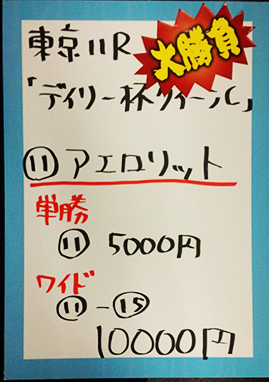 東京11R
大勝負
「デイリー杯クイーンC」
⑪アエロリット
単勝
⑪ 5000円
ワイド
⑪-⑮
10000円